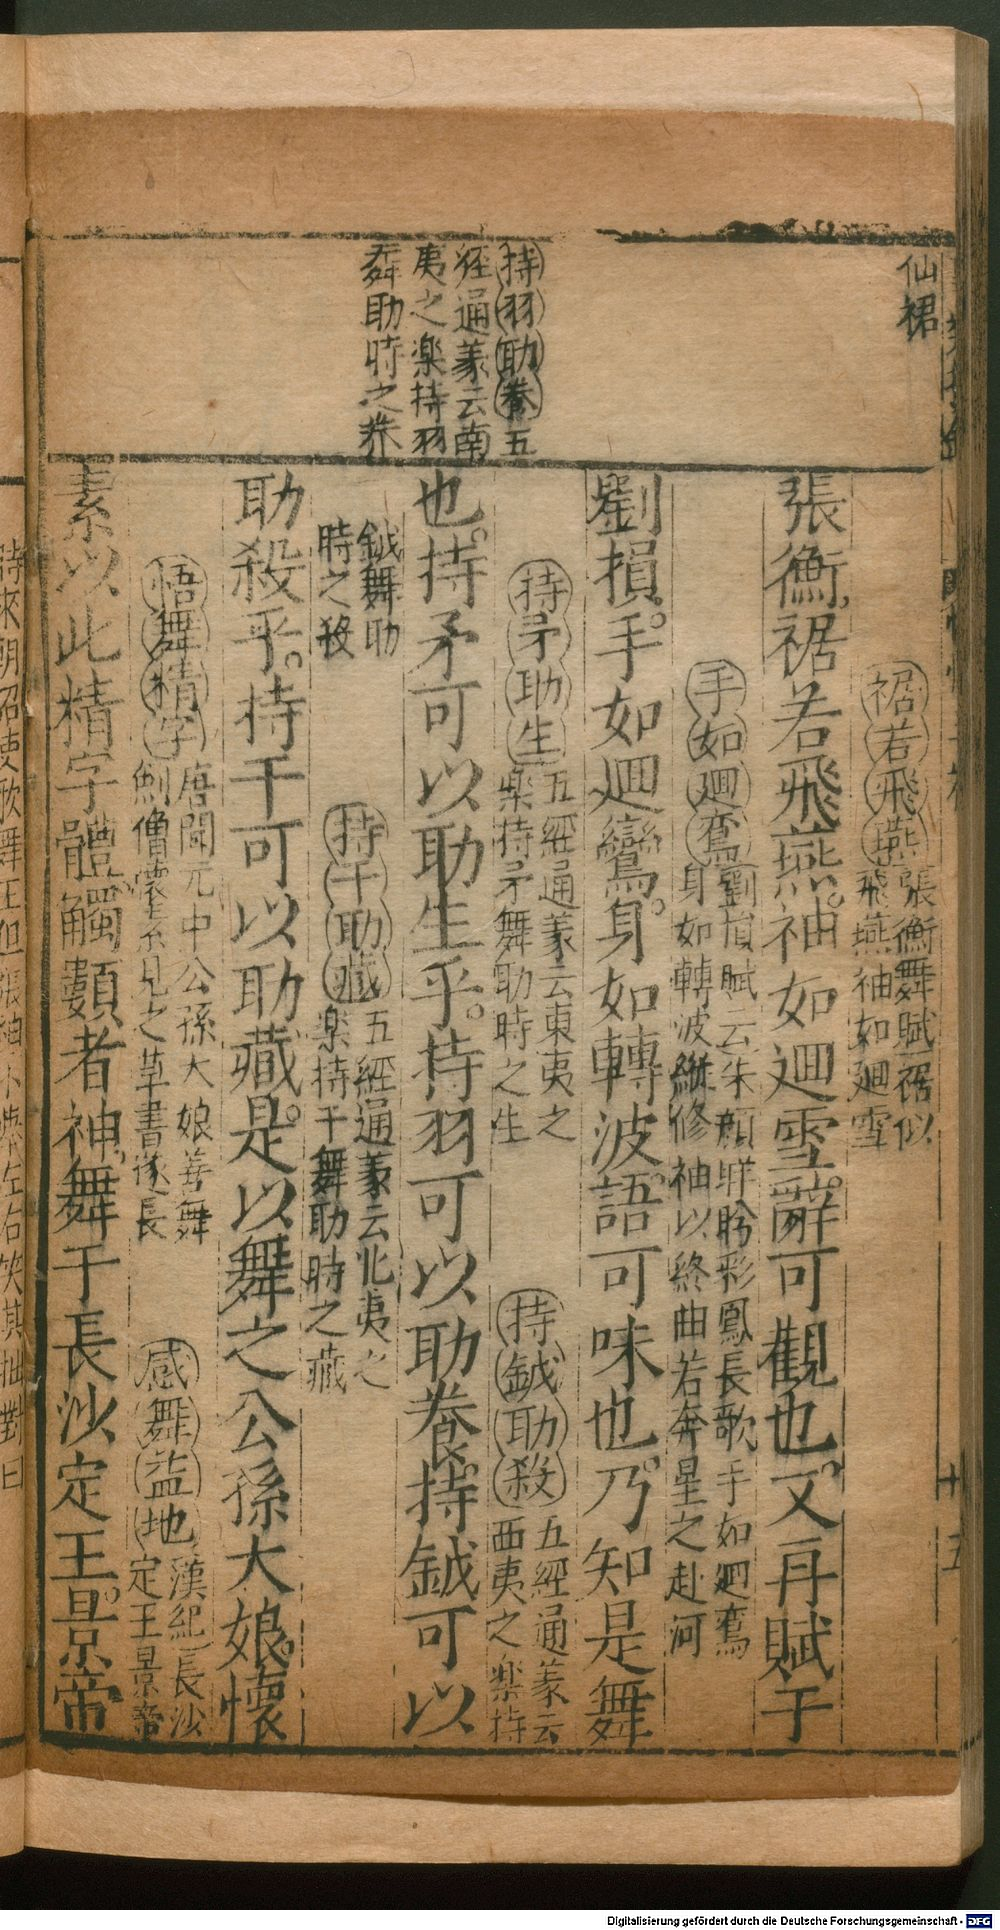 仙裙
持羽助養五
経通義云南
夷之楽持羽
舞助時之养
裾若飛燕張衡舞賦裾似
飛燕袖如廻雪
張衡裾若飛燕袖如廻雪辭可觀也又再賦于
手如廻鸞劉損賦云朱顔
彩鳳長歌手如廻鸞
身如轉波
修袖以終曲若奔星之赴河
劉損手如廻鸞身如轉波語可味也乃知是舞
持矛助生五經通義云東夷之
楽持矛舞助時之生
持鉞助殺五經通義云
西夷之楽持
也持矛可以助生乎持羽可以助養持鉞可以
鉞舞助
時之殺
持干助藏五經通義云北夷之
楽持干舞助時之藏
助殺乎持干可以助藏是以舞之公孫大娘懷
悟舞精字唐開元中公孫大娘善舞
劍僧懷素見之草書遂長
感舞益地漢紀長沙
定王景帝
素以此精字體觸類者神舞于長沙定王景帝
十五
時來朝召使歌舞王但張袖小舉左右笑其拙對曰
Digitalisierung gefördert durch die Deutsche Forschungsgemeinschaft - DFG